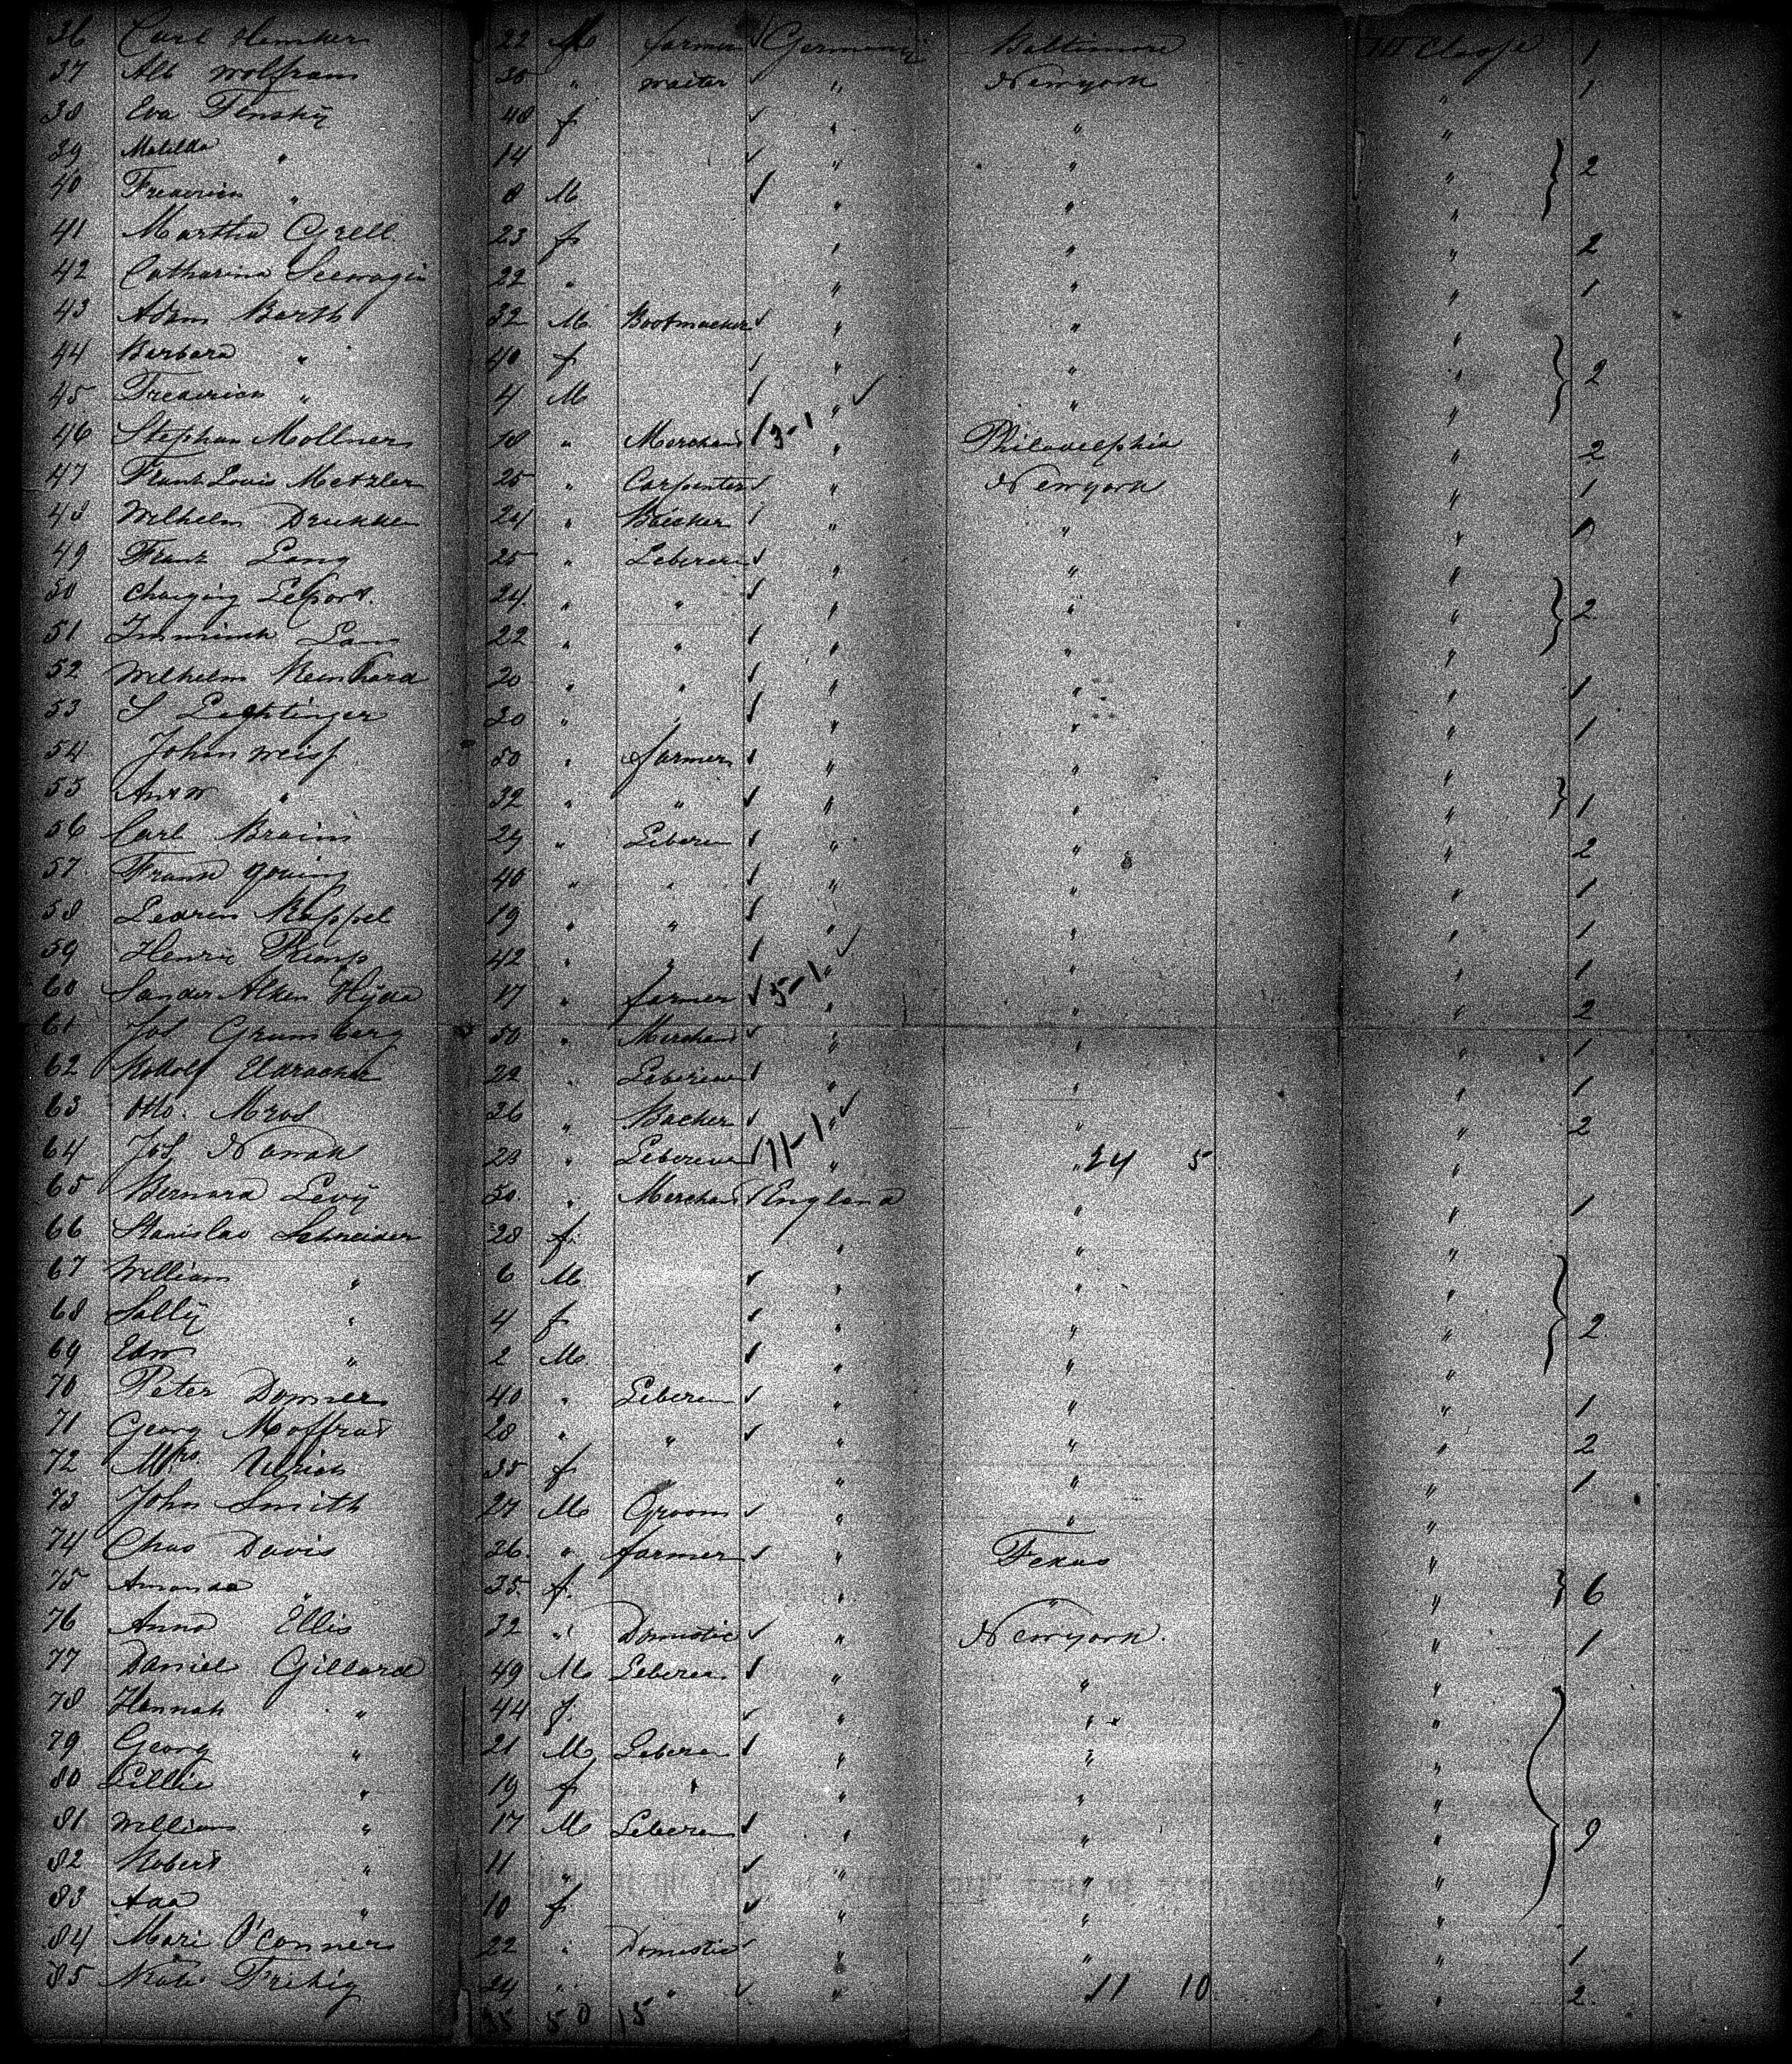 36 Carl Hemker 22 M farmer Germany Baltimore III Classe 1
37 Alb Wolfram 30 " waiter " Newyork " 1
38 Eva Tensky 48 f " " "
39 Matilda " 14 " " " 2
40 Frederick " 8 M " " "
41 Martha Grell 23 f " " " 2
42 Catharina 22 " " " " 1
43 Adam Barth 32 M Bootmacker " " "
44 Barbara " 40 f " " " 2
45 Frederick " 4 M " " "
46 Stephan Mollner 18 " Merchand 3-1 " Philadelphia " 2
47 Frank Louis Metzler 25 " Carpenter " Newyork " 1
48 Wilhelm Drukker 24 " Baecker " " "
49 Franz Lang 25 " Leberer " " "
50 24 " " " " " 2
51 22 " " " " "
52 Wilhelm Reinhard 20 " " " " " 1
53 S Leghtinger 20 " " " " " 1
54 John Weiss 50 " farmer " " "
55 " 32 " " " " " 1
56 Carl Braim 29 " Leberer " " " 2
57 Frank 40 " " " " " 1
58 Kappel 19 " " " " " 1
59 Henri 42 " " " " " 1
60 Sander Alken Hyda 17 " farmer 5-1 " " " 2
61 Jos Grumberg 50 " Merchand " " " 1
62 Rudolf 22 " Leberer " " " 1
63 Otto Mrod 26 " Backer " " " 2
64 Jos Nowak 23 " Leberer 11-1 " " 24 5 "
65 Bernard Levy 50 " Merchand England " " 1
66 Stanislav Schneider 28 f " " "
67 William " 6 M " " "
68 Sally " 4 f " " " 2
69 Edw " 2 M " " "
70 Peter Donner 40 " Leberer " " " 1
71 Georg Moffrad 28 " " " " " 2
72 Mrs Ulrich 35 f " " " 1
73 John Smith 27 M Groom " " "
74 Chas Davis 26 " farmer " Texas "
75 Amanda " 35 f " " 6
76 Anna Ellis 32 " Domestic " Newyork " 1
77 Daniel Gillard 49 M Leberer " " "
78 Hannah " 44 f " " "
79 Georg " 21 M Leberer " " "
80 Lillie " 19 f " " " "
81 William " 17 M Leberer " " " 9
82 Robert " 11 " " " "
83 Ada " 10 f " " "
84 Mari O'Conner 22 " Domestic " " " 1
85 Kate Frihig 24 " " " 11 10 " 2
35 50 15